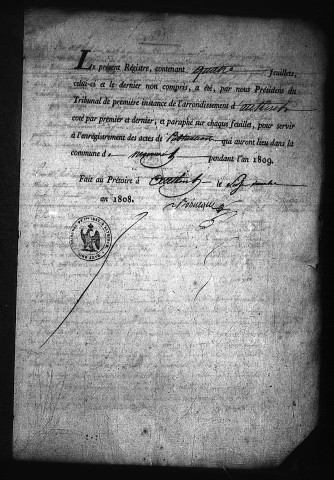 LE présent Registre, contenant quatre feuillets,
celui-ci et le dernier non compris, a été, par nous Président du
Tribunal de première instance de l'arrondissement d'
coté par premier et dernier, et paraphé sur chaque feuillet, pour servir
à l'enregistrement des actes de qui auront lieu dans la
commune d pendant l'an 1809.
Fait au Prétoire à le
an 1808.